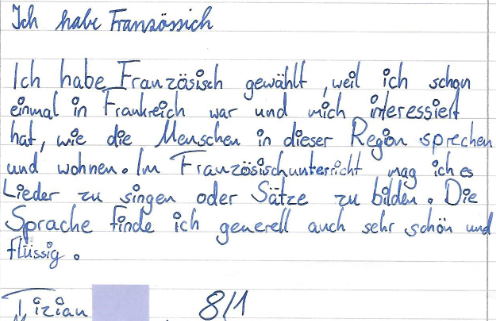 Ich habe Franzömich
Ich habe Französisch gewählt, weil ich schon
einmal in Frankreich war und mich interessiert
hat, wie die Menschen in dieser Region sprechen
und wohnen. Im Französischunterricht mag ich es
Lieder zu singen oder Sätze zu bilden. Die
Sprache finde ich generell auch sehr schön und
flüssig.
Tizian 8/1